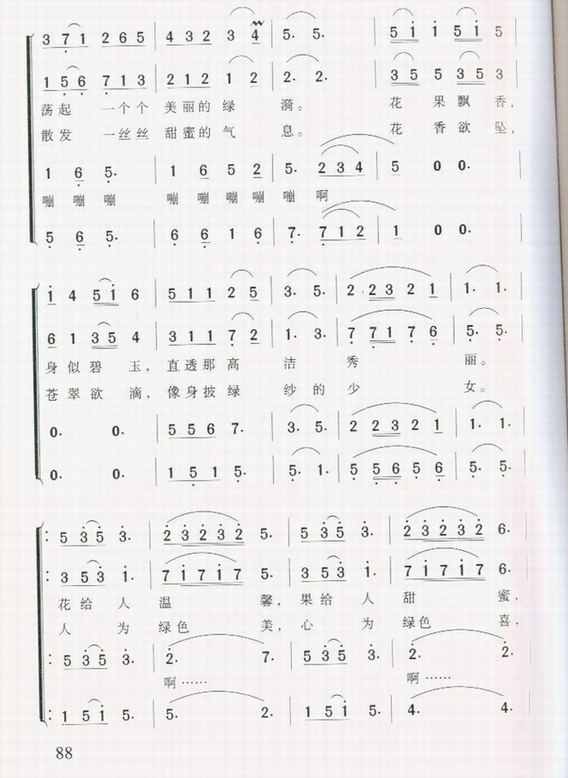 3 7 1 2 6 5 | 4 3 2 3 4 | 5. 5. | 5 i i 5 i 5
1 5 6 7 1 3 | 2 1 2 1 2 | 2. 2. | 3 5 5 3 5 3
荡起 一个个 美丽的绿 漪。 花 果飘香,
散发 一丝丝 甜蜜的气 息。 花 香欲坠,
1 6 5. | 1 6 5 2 | 5. 2 3 4 | 5 0 0.
嘣 嘣 嘣 嘣 嘣 嘣 嘣 嘣 啊
5 6 5. | 6 6 1 6 | 7. 7 1 2 | 1 0 0.
i 4 5 i 6 | 5 1 1 2 5 | 3. 5. | 2 2 3 2 1 | 1. 1.
6 1 3 5 4 | 3 1 1 7 2 | 1. 3. | 7 7 1 7 6 | 5. 5.
身似碧 玉, 直透那高 洁 秀 丽。
苍翠欲 滴, 像身披绿 纱的少 女。
0. 0. | 5 5 6 7. | 3. 5. | 2 2 3 2 1 | 1. 1.
0. 0. | 1 5 1 5. | 5. 1. | 5 5 6 5 6 | 5. 5.
: 5 3 5 3. | 2 3 2 3 2 5. | 5 3 5 3. | 2 3 2 3 2 6.
: 3 5 3 i. | 7 i 7 i 7 5. | 3 5 3 i. | 7 i 7 i 7 6.
花给 人 温 馨, 果给 人 甜 蜜.
人 为 绿色 美, 心 为 绿色 喜.
: 5 3 5 3. | 2. 7. | 5 3 5 3. | 2. 2.
啊…… 啊……
: 1 5 i 5. | 5. 2. | 1 5 i 5. | 4. 4.
88